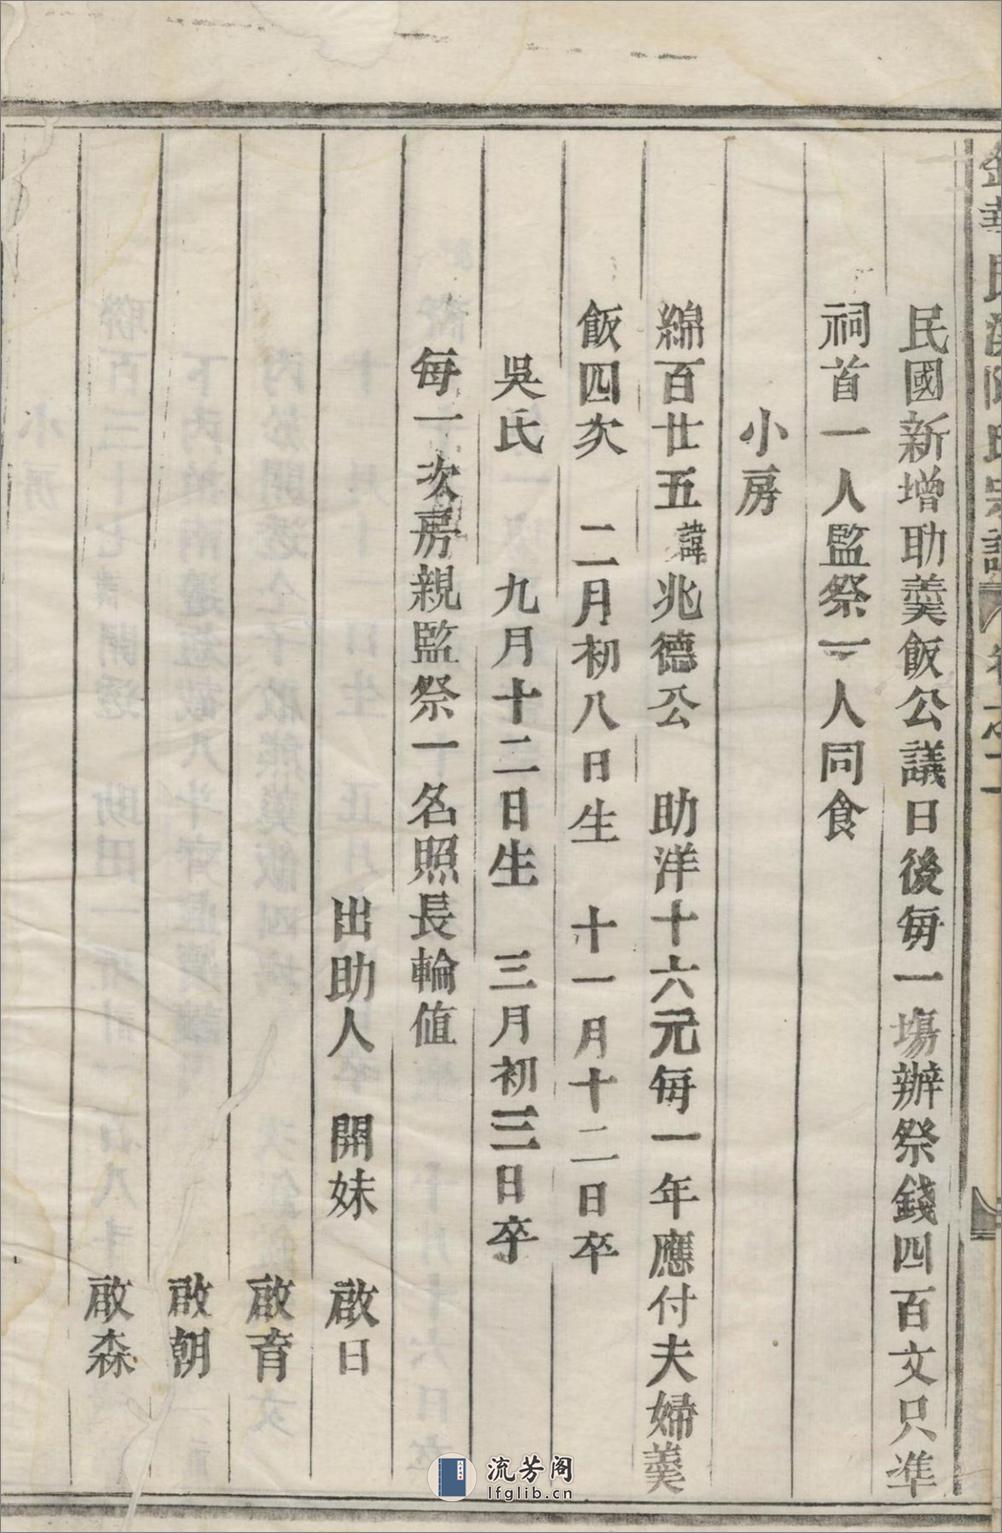 民國新增助羹飯公議日後每一塲辦祭錢四百文只准
祠首一人監祭一人同食
小房
綿百廿五諱兆德公 助洋十六元每一年應付夫婦羹
飯四次 二月初八日生 十一月十二日卒
吳氏 九月十二日生 三月初三日卒
每一次房親監祭一名照長輪值
出助人 開妹 啟日
啟育
啟朝
啟森
流芳阁
lfglib.cn